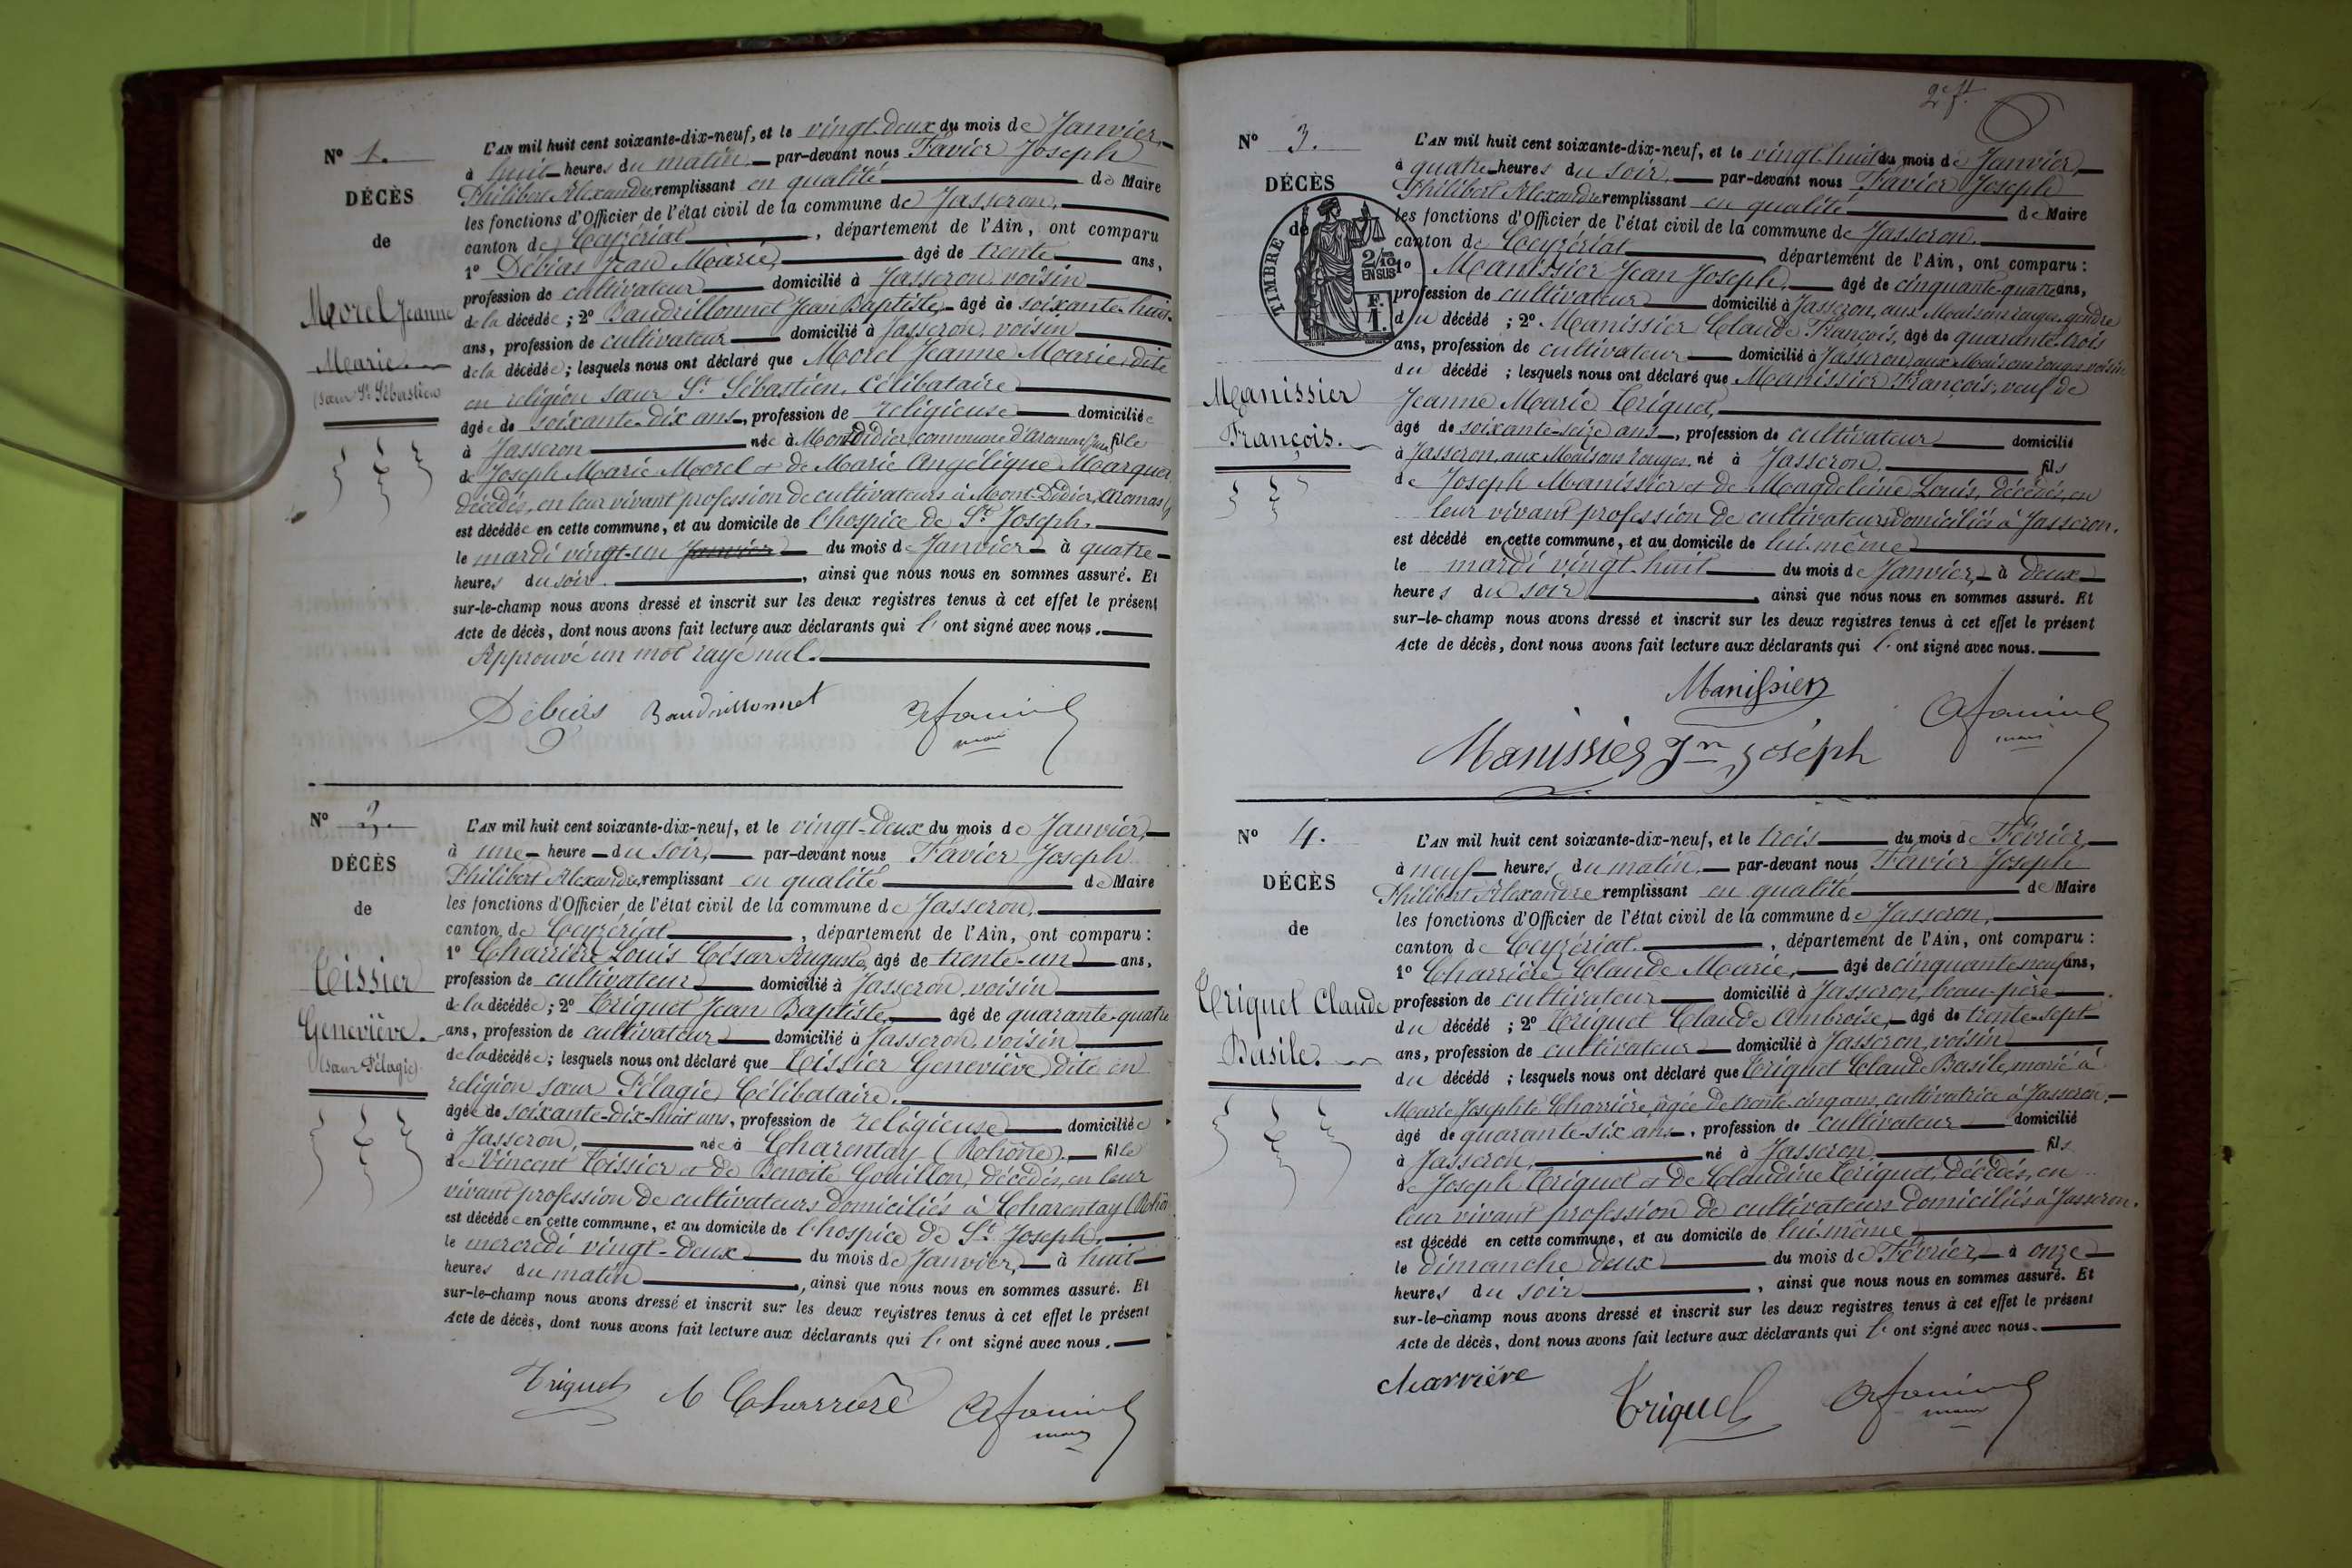 N° 1.
DÉCÈS
de
Morel Jeanne
Marie
(Sœur St Sébastien)
L'AN mil huit cent soixante-dix-neuf, et le vingt-deux du mois de Janvier,
à huit heures du matin, par-devant nous Favier Joseph
Philibert Alexandre, remplissant en qualité de Maire
les fonctions d'Officier de l'état civil de la commune de Jasseron,
canton de Ceyzériat, département de l'Ain, ont comparu
1° Débias Jean Marie, âgé de trente ans,
profession de cultivateur domicilié à Jasseron, voisin
de la décédée ; 2° Baudrillonnet Jean Baptiste, âgé de soixante-huit
ans, profession de cultivateur domicilié à Jasseron, voisin
de la décédée ; lesquels nous ont déclaré que Morel Jeanne Marie, dite
en religion sœur St Sébastien, Célibataire
âgée de soixante-dix ans, profession de religieuse domiciliée
à Jasseron née à Montdidier, commune d'Aromas fille
de Joseph Marie Morel et de Marie Angélique Marquer,
décédés, en leur vivant profession de cultivateurs à Mont-Didier, Aromas
est décédée en cette commune, et au domicile de l'hospice de St Joseph.
le mardi vingt-un Janvier du mois de Janvier à quatre
heures du soir, ainsi que nous nous en sommes assuré. Et
sur-le-champ nous avons dressé et inscrit sur les deux registres tenus à cet effet le présent
Acte de décès, dont nous avons fait lecture aux déclarants qui l' ont signé avec nous.
Approuvé un mot rayé nul.
Débias Baudrillonnet
maire
N° 2.
DÉCÈS
de
Tissier
Geneviève.
(sœur Pélagie)
L'AN mil huit cent soixante-dix-neuf, et le vingt-deux du mois de Janvier,
à une heure du soir, par-devant nous Favier Joseph
Philibert Alexandre, remplissant en qualité de Maire
les fonctions d'Officier de l'état civil de la commune de Jasseron,
canton de Ceyzériat, département de l'Ain, ont comparu :
1° Charrière Louis César Auguste, âgé de trente-un ans,
profession de cultivateur domicilié à Jasseron, voisin
de la décédée ; 2° Triquet Jean Baptiste, âgé de quarante-quatre
ans, profession de cultivateur domicilié à Jasseron, voisin
de la décédée ; lesquels nous ont déclaré que Tissier Geneviève, dite en
religion sœur Pélagie, Célibataire.
âgée de soixante-dix-huit ans, profession de religieuse domiciliée
à Jasseron, née à Charentay (Rhône), fille
de Vincent Tissier et de Benoite Gouillon, décédés, en leur
vivant profession de cultivateurs domiciliés à Charentay (Rhô
est décédée en cette commune, et au domicile de l'hospice de St Joseph.
le mercredi vingt-deux du mois de Janvier, à huit
heures du matin, ainsi que nous nous en sommes assuré. Et
sur-le-champ nous avons dressé et inscrit sur les deux registres tenus à cet effet le présent
Acte de décès, dont nous avons fait lecture aux déclarants qui l' ont signé avec nous.
Triquet Charrière
maire
2e ft
N° 3.
DÉCÈS
de
TIMBRE
2/10
EN SUS
F.
1.
Manissier
François.
L'AN mil huit cent soixante-dix-neuf, et le vingt-huit du mois de Janvier,
à quatre heures du soir, par-devant nous Favier Joseph
Philibert Alexandre, remplissant en qualité de Maire
les fonctions d'Officier de l'état civil de la commune de Jasseron,
canton de Ceyzériat, département de l'Ain, ont comparu :
1° Manissier Jean Joseph, âgé de cinquante-quatre ans,
profession de cultivateur domicilié à Jasseron, aux Maisons rouges, gendre
du décédé ; 2° Manissier Claude François, âgé de quarante-trois
ans, profession de cultivateur domicilié à Jasseron, aux Maisons rouges, voisin
du décédé ; lesquels nous ont déclaré que Manissier François, veuf de
Jeanne Marie Triquet,
âgé de soixante-seize ans, profession de cultivateur domicilié
à Jasseron, aux Maisons rouges, né à Jasseron, fils
de Joseph Manissier et de Magdeleine Louis, décédés, en
leur vivant profession de cultivateurs domiciliés à Jasseron.
est décédé en cette commune, et au domicile de lui-même
le mardi vingt-huit du mois de Janvier, à deux
heures du soir, ainsi que nous nous en sommes assuré. Et
sur-le-champ nous avons dressé et inscrit sur les deux registres tenus à cet effet le présent
Acte de décès, dont nous avons fait lecture aux déclarants qui l' ont signé avec nous.
Manissier
maire
Manissier Jn Joseph
N° 4.
DÉCÈS
de
Triquet Claude
Basile.
L'AN mil huit cent soixante-dix-neuf, et le trois du mois de Février,
à neuf heures du matin, par-devant nous Favier Joseph
Philibert Alexandre remplissant en qualité de Maire
les fonctions d'Officier de l'état civil de la commune de Jasseron,
canton de Ceyzériat, département de l'Ain, ont comparu :
1° Charrière Claude Marie, âgé de cinquante-neuf ans,
profession de cultivateur domicilié à Jasseron, beau-père
du décédé ; 2° Triquet Claude Ambroise, âgé de trente-sept
ans, profession de cultivateur domicilié à Jasseron, voisin
du décédé ; lesquels nous ont déclaré que Triquet Claude Basile, marié à
Marie Josephte Charrière, âgée de trente-cinq ans, cultivatrice à Jasseron,
âgé de quarante-six ans, profession de cultivateur domicilié
à Jasseron, né à Jasseron, fils
de Joseph Triquet et de Claudine Triquet, décédés, en
leur vivant profession de cultivateurs domiciliés à Jasseron.
est décédé en cette commune, et au domicile de lui-même
le dimanche deux du mois de Février, à onze
heures du soir, ainsi que nous nous en sommes assuré. Et
sur-le-champ nous avons dressé et inscrit sur les deux registres tenus à cet effet le présent
Acte de décès, dont nous avons fait lecture aux déclarants qui l' ont signé avec nous.
charrière Triquet
maire